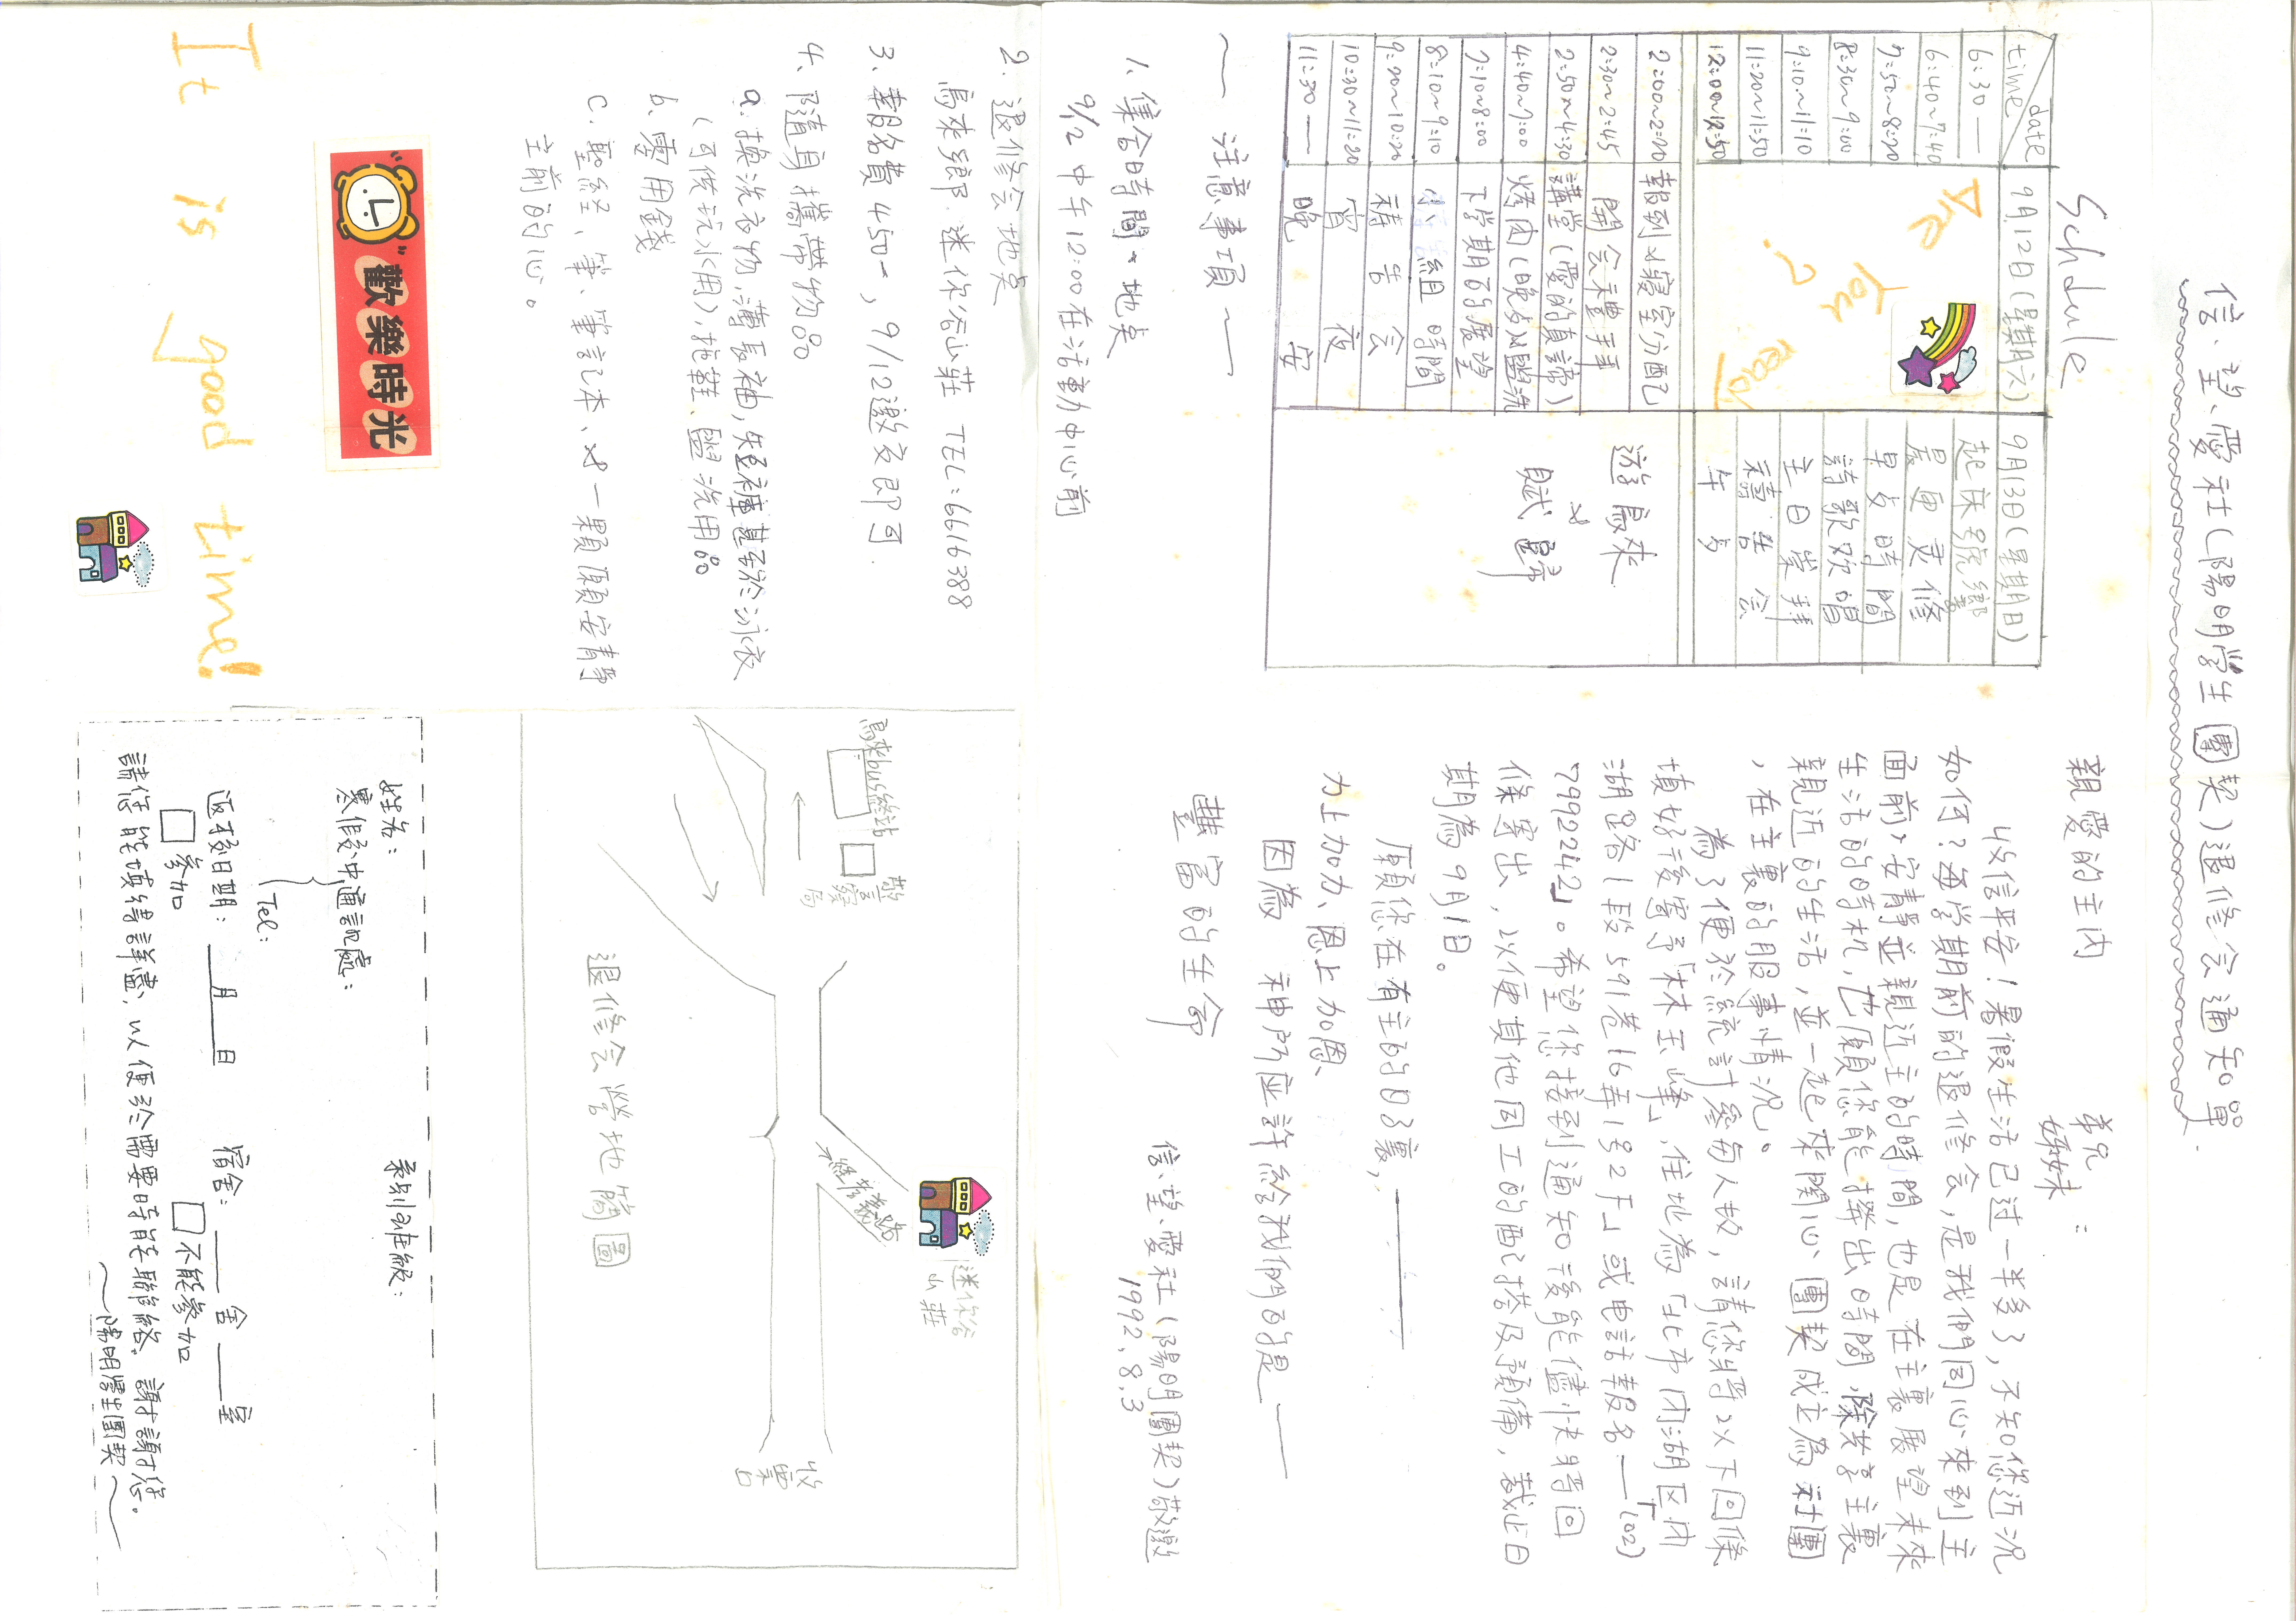 信、望、愛社(陽明學生團契)退修会通知單
Schdule
time date 9月12日(星期六) 9月13日(星期日)
6:30— 起床號鄉響
6:40~7:40 晨更灵修
7:50~8:20 早支時間
8:30~9:00 詩歌欢唱
9:10~11:10 主日崇拜
11:20~11:50 禱告会
12:00~12:50 午鳥
Are
You
ready
?
2:00~2:20 報到以寢室分配
2:30~2:45 開会禮拜
2:50~4:30 講堂(愛的真諦)
4:40~7:00 烤肉(晚歺)以盥洗
7:10~8:00 下学期的展望
8:10~9:10 小組時間
9:20~10:20 禱告会
10:30~11:20 宵夜
11:30— 晚安
遊烏來
賦歸
~注意事項~
1. 集合時間、地点
9/12 中午12:00在活動中心前
2. 退修会地点
烏來鄉 迷你谷山莊 TEL:6616388
3. 報名費450-, 9/12邀交即可.
4. 隨身攜帶物品
a. 换洗衣物,薄長袖,短褲甚至於泳衣
(可供玩水用),拖鞋、盥洗用品
b. 零用錢
c. 聖経、筆、筆記本、以一顆願安靜
主前的心。
"歡樂時光"
It is good time!
親愛的主內 弟兄
姊妹 :
以信平安!暑假生活已过一半多了,不知您近况
如何?每学期前的退修会,是我們同心來到主
面前,安靜並親近主的時間,也是在主裏展望未來
生活的時机,也願您能撥出時間,除共享主裏
親近的生活,並一起來関心團契成立為社團
,在主裏的服事情况。
為了便於統計參與人数,請您將以下回條
填好後寄予「林玉峰」,住地為「北市内湖区内
湖路1段591巷16弄1号2F」或电話報名—「(02)
7992242」。希望您接到通知後能儘快將回
條寄出,以便其他同工的配搭及預備,截止日
期為9月1日。
願您在有主的日子裏,——
力上加力、恩上加恩、
因為 神所应許給我們的是——
豐富的生命
信、望、愛社(陽明團契)敬邀
1992.8.3
烏來bus終站
警察局
迷你谷
山莊
收票口
退修会營地簡圖
姓名: 系別班級:
寒假中通訊處:
Tel:
返校日期:___月___日 宿舍:___舍___室
□參加 □不能參加
請您能填繕詳盡,以便於需要時能聯絡. 謝謝您。
~陽明學生團契~